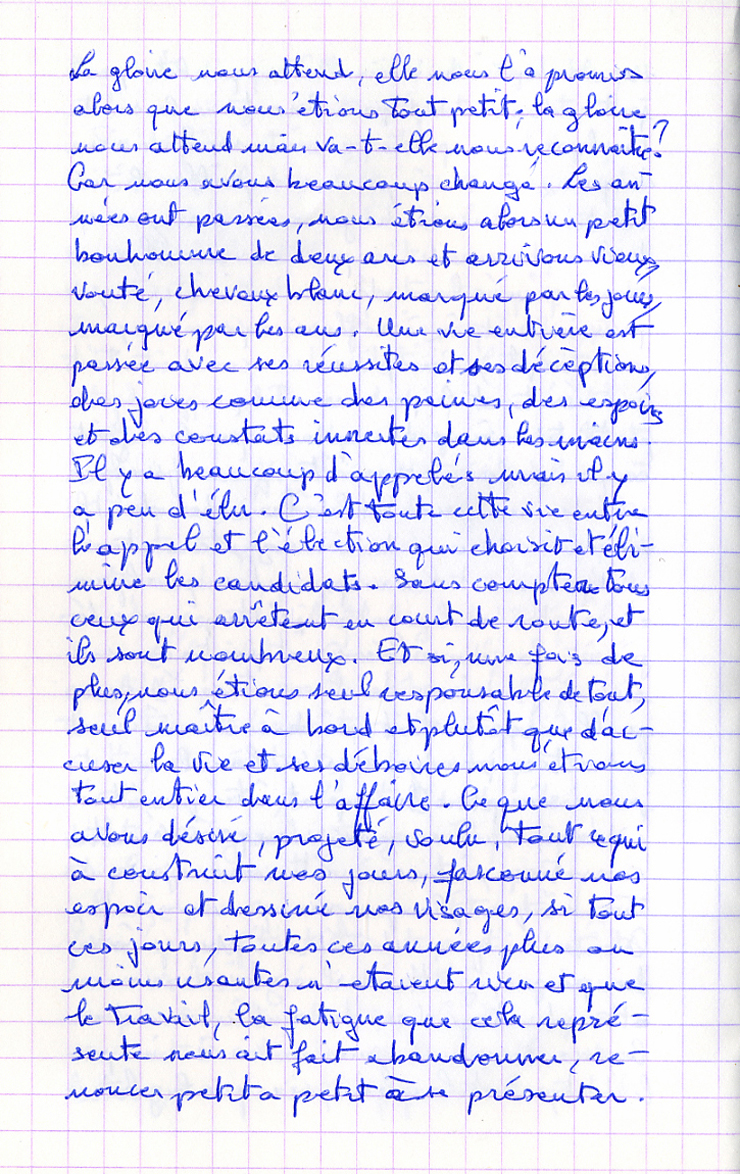 La gloire nous attend, elle nous l'a promis
alors que nous étions tout petit, la gloire
nous attend mais va-t-elle nous reconnaître?
Car nous avons beaucoup changé. Les an-
nées ont passées, nous étions alors un petit
bonhomme de deux ans et arrivons vieux,
vouté, cheveux blanc, marqué par les jours,
marqué par les ans. Une vie entière est
passée avec ses réussites et ses décèptions,
des joies comme des peines, des espoirs
et des constats inscrites dans les mains.
Il y a beaucoup d'appelés mais il y
a peu d'élu. C'est toute cette vie entre
l'appel et l'élection qui choisit et éli-
mine les candidats. Sans compter tous
ceux qui arrêtent en court de route, et
ils sont nombreux. Et si, une fois de
plus, nous étions seul responsable de tout,
seul maître à bord et plutôt que d'ac-
cuser la vie et ses déboires nous étions
tout entier dans l'affaire. Ce que nous
avons désiré, projeté, voulu, tout ce qui
à construit nos jours, fasconné nos
espoir et dessiné nos visages, si tout
ces jours, toutes ces années plus ou
moins usantes n'étaient rien et que
le travail, la fatigue que cela repré-
sente nous ait fait abandonner, re-
noncer petit a petit à se présenter.